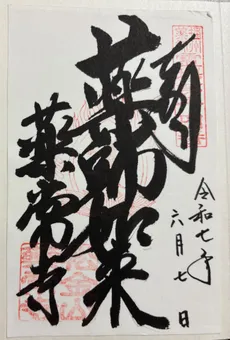 奉拝
薬師如来
薬常寺
令和七年
六月七日